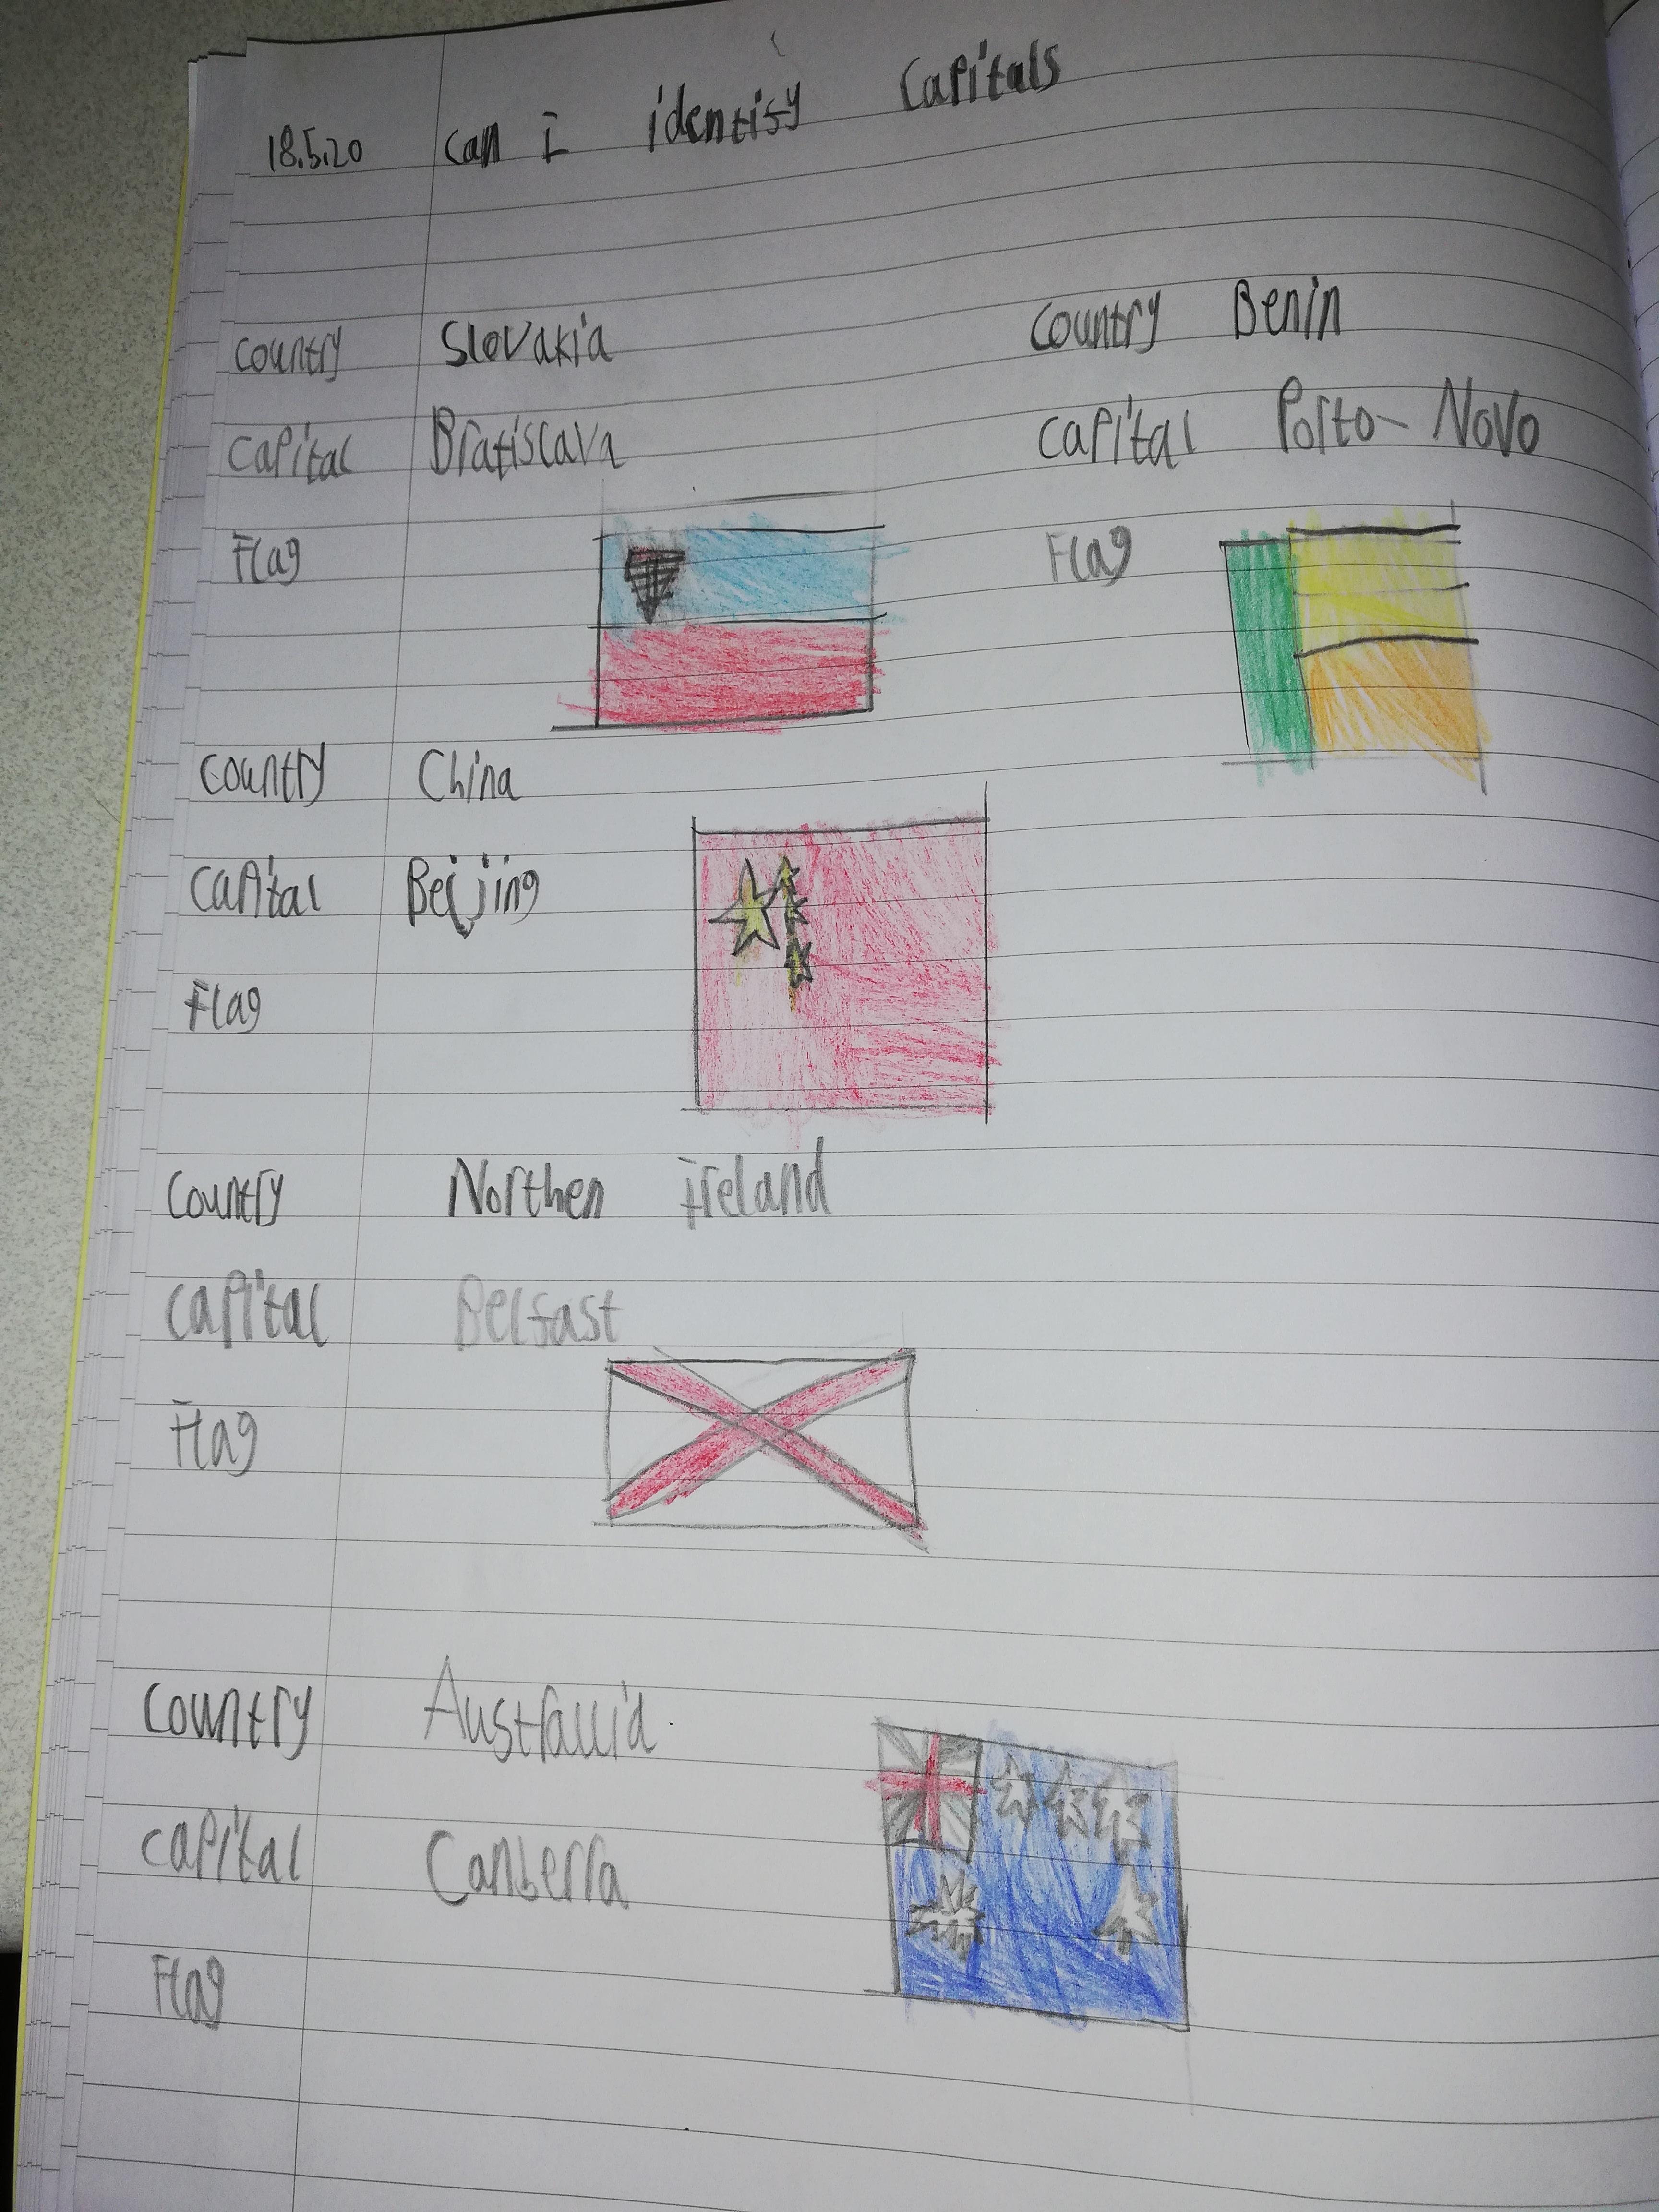 18.5.20 can I identify Capitals
Country Slovakia
Capital Bratislava
Flag
Country Benin
Capital Porto-Novo
Flag
Country China
Capital Beijing
Flag
Country Northen Ireland
Capital Belfast
Flag
Country Australlia
Capital Canberra
Flag